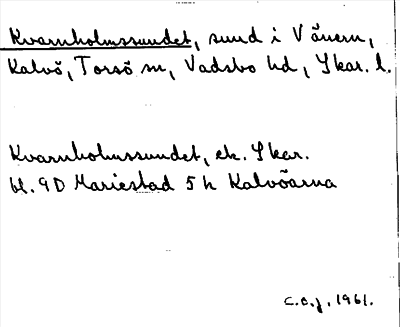 Kvarnholmssundet, sund i Vänern,
Kalvö, Torsö sn, Vadsbo hd, Skar. l.
Kvarnholmssundet, ek. Skar.
bl. 9D Mariestad 5 h Kalvöarna
C.O.J. 1961.